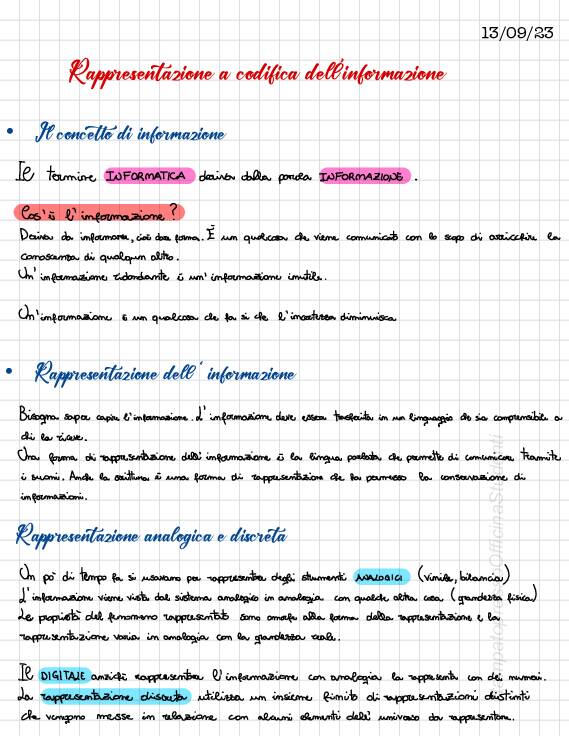 13/09/23
Rappresentazione a codifica dell'informazione
• Il concetto di informazione
Il termine INFORMATICA deriva dalla parola INFORMAZIONE.
Cos'è l'informazione?
Deriva da informare, cioè dare forma. È un qualcosa che viene comunicato con lo scopo di arricchire la
conoscenza di qualcun altro.
Un'informazione ridondante è un'informazione inutile.
Un'informazione è un qualcosa che fa si che l'incertezza diminuisca
• Rappresentazione dell'informazione
Bisogna saper capire l'informazione. L'informazione deve essere trasferita in un linguaggio che sia comprensibile a
chi la riceve.
Una forma di rappresentazione dell'informazione è la lingua parlata che permette di comunicare tramite
i suoni. Anche la scrittura è una forma di rappresentazione che ha permesso la conservazione di
informazioni.
Rappresentazione analogica e discreta
Un pò di tempo fa si usavano per rappresentare degli strumenti ANALOGICI (vinile, bilancia)
L'informazione viene vista dal sistema analogico in analogia con qualche altra cosa (grandezza fisica)
Le proprietà del fenomeno rappresentato sono omorfe alla forma della rappresentazione e la
rappresentazione varia in analogia con la grandezza reale.
Il DIGITALE anzichè rappresentare l'informazione con analogia la rappresenta con dei numeri.
La rappresentazione discreta utilizza un insieme finito di rappresentazioni distinti
che vengono messe in relazione con alcuni elementi dell'universo da rappresentare.